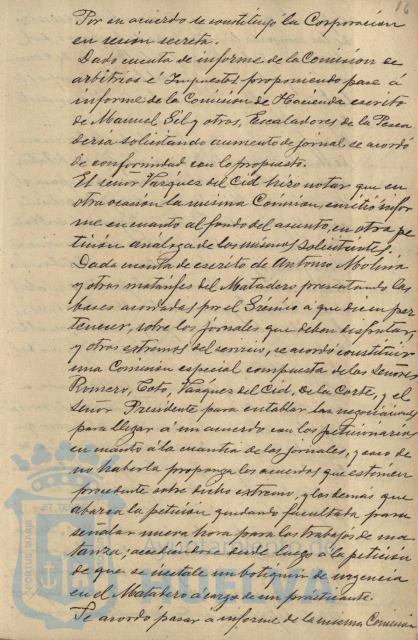 16
Por su acuerdo se constituyó la Corporación
en sesión secreta.
Dada cuenta de informe de la Comisión de
arbitrios é Impuestos proponiendo pase á
informe de la Comisión de Hacienda escrito
de Manuel Gil y otros, Escaladores de la Pesca
dería solicitando aumento de jornal se acordó
de conformidad con lo propuesto.
El señor Vázquez del Cid hizo notar que en
otra ocasión la misma Comisión, emitió infor
me en cuanto al fondo del asunto, en otra pe
tición análoga de los mismos solicitantes.
Dada cuenta de escrito de Antonio Molina
y otros matarifes del Matadero presentando las
bases acordadas por el Gremio á que dicen per
tenecer, sobre los jornales que deben disfrutar,
y otros extremos del servicio, se acordó constituir
una Comisión especial compuesta de los Señores
Romero, Toto, Vázquez del Cid, de la Corte, y el
Señor Presidente para entablar las negociaciones
para llegar á un acuerdo con los peticionarios
en cuanto á la cuantía de los jornales, y caso de
no haberla proponga los acuerdos que estimen
procedente sobre dicho extremo, y los demás que
abarca la petición quedando facultada para
señalar nueva hora para los trabajos de ma
tanza, accediéndose desde luego á la petición
de que se instale un botiquín de urgencia
en el Matadero á cargo de un practicante.
Se acordó pasar á informe de la misma Comisión
PORTUS MARIS
HUELVA